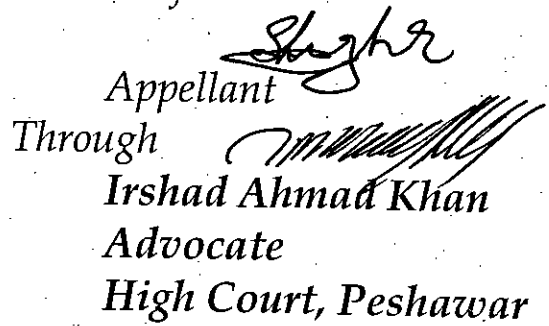 Appellant
Through
Irshad Ahmad Khan
Advocate
High Court, Peshawar